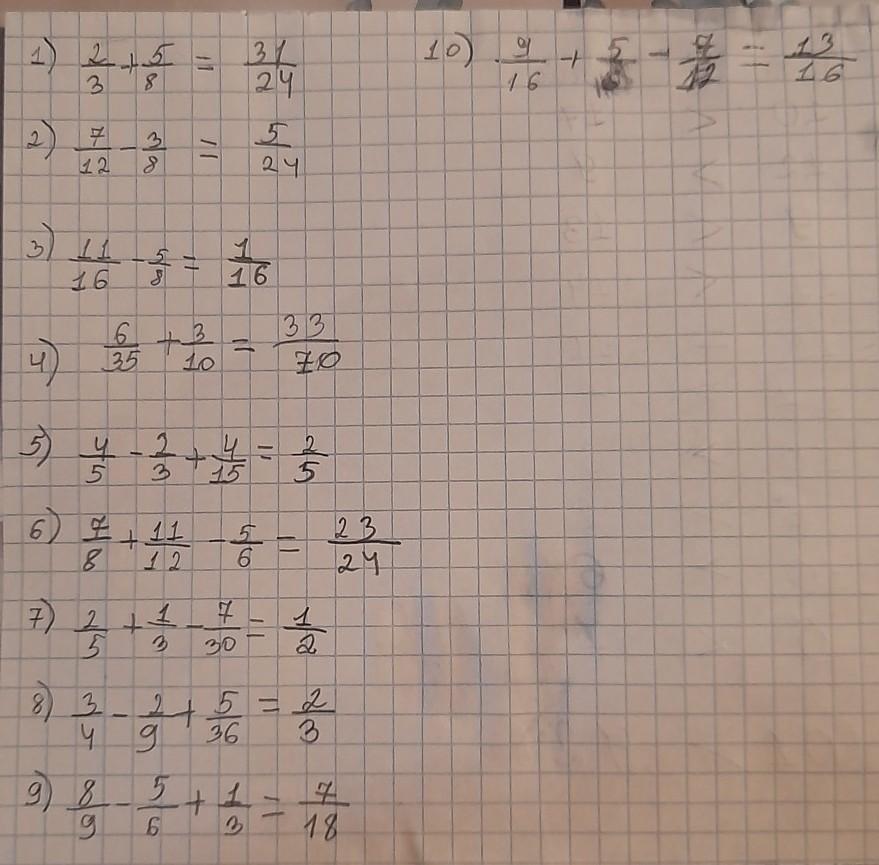 1) 2/3 + 5/8 = 31/24
2) 7/12 - 3/8 = 5/24
3) 11/16 - 5/8 = 1/16
4) 6/35 + 3/10 = 33/70
5) 4/5 - 2/3 + 4/15 = 2/5
6) 7/8 + 11/12 - 5/6 = 23/24
7) 2/5 + 1/3 - 7/30 = 1/2
8) 3/4 - 2/9 + 5/36 = 2/3
9) 8/9 - 5/6 + 1/3 = 7/18
10) 9/16 + 5/ - 7/12 = 13/16